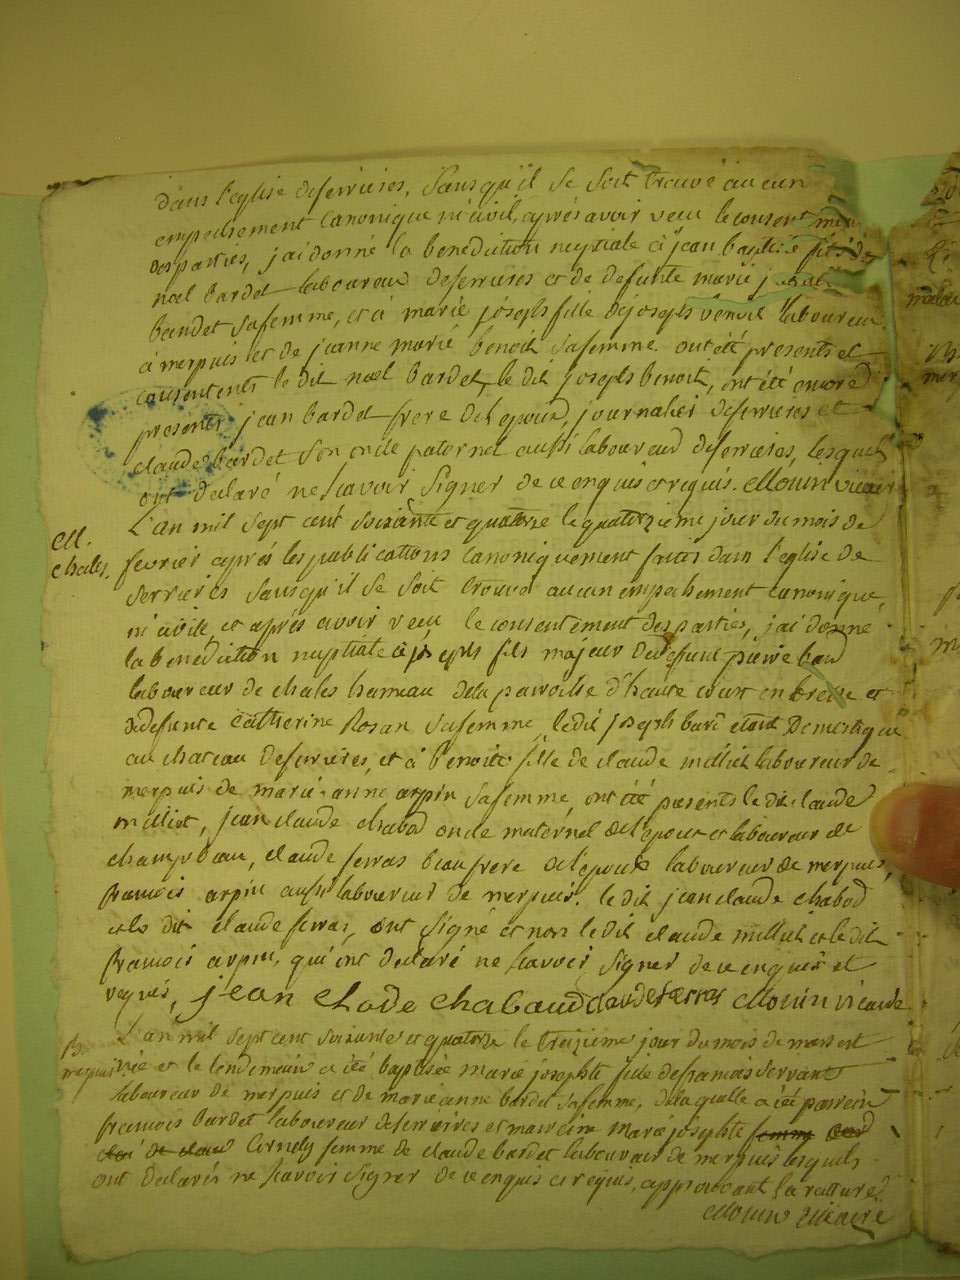 dans l'eglise deserrieres, sans qu'il se soit trouvé aucun
empechement canonique ni civil, aprés avoir veu le consentement
des parties, j'ai donné la benediction nuptiale à jean baptiste fils de
noel bardet laboureur deserrieres et de defunte marie
baudet sa femme, et à marie joseph fille de joseph benoit laboureur
à merpuis et de jeanne marie benoit sa femme. ont été presents et
consentents le dit noel bardet, le dit joseph benoit, ont été encore
presents jean bardet frere de l'epoux, journalier deserrieres et
claude bardet son oncle paternel aussi laboureur deserrieres, lesquels
ont declaré ne scavoir signer de ce enquis et requis. Mouin vicaire
L'an mil sept cent soixante et quatorze le quatorzieme jour du mois de
M.
chales.
fevrier aprés les publications canoniquement faites dans l'eglise de
serrieres sans qu'il se soit trouvé aucun empechement canonique,
ni civile, et aprés avoir veu le consentement des parties, j'ai donné
la benediction nuptiale à joseph fils majeur de defunt pierre
laboureur de chales hameau de la parroisse d'haute court en bresse et
de defunte catherine Rosan sa femme, le dit joseph etant Domestique
au chateau deserrieres, et à benoite fille de claude milliet laboureur de
merpuis de marie anne arpin sa femme, ont été presents le dit claude
milliet, jean claude chabod oncle maternel de l'epoux et laboureur de
champ claude serras beau frere de l'epouse laboureur de merpuis,
francois arpin aussi laboureur de merpuis. le dit jean claude chabod
et le dit claude serras, ont signé et non le dit claude milliet et le dit
francois arpin, qui ont declaré ne scavoir signer de ce enquis et
requis, jean clode chabaud claude serras Mouin vicaire
L'an mil sept cent soixante et quatorze le treizieme jour du mois de mars est
B.
merpuis
née et le lendemain a été baptisée marie josephte fille de francois servant
laboureur de merpuis et de marie anne bardet sa femme, de laquelle a été parrein
francois bardet laboureur deserrieres et marreine marie josephte femme
de claude Cornely femme de claude bardet laboureur de merpuis lesquels
ont declarés ne scavoir signer de ce enquis et requis, approuvant la rature
Mouin vicaire